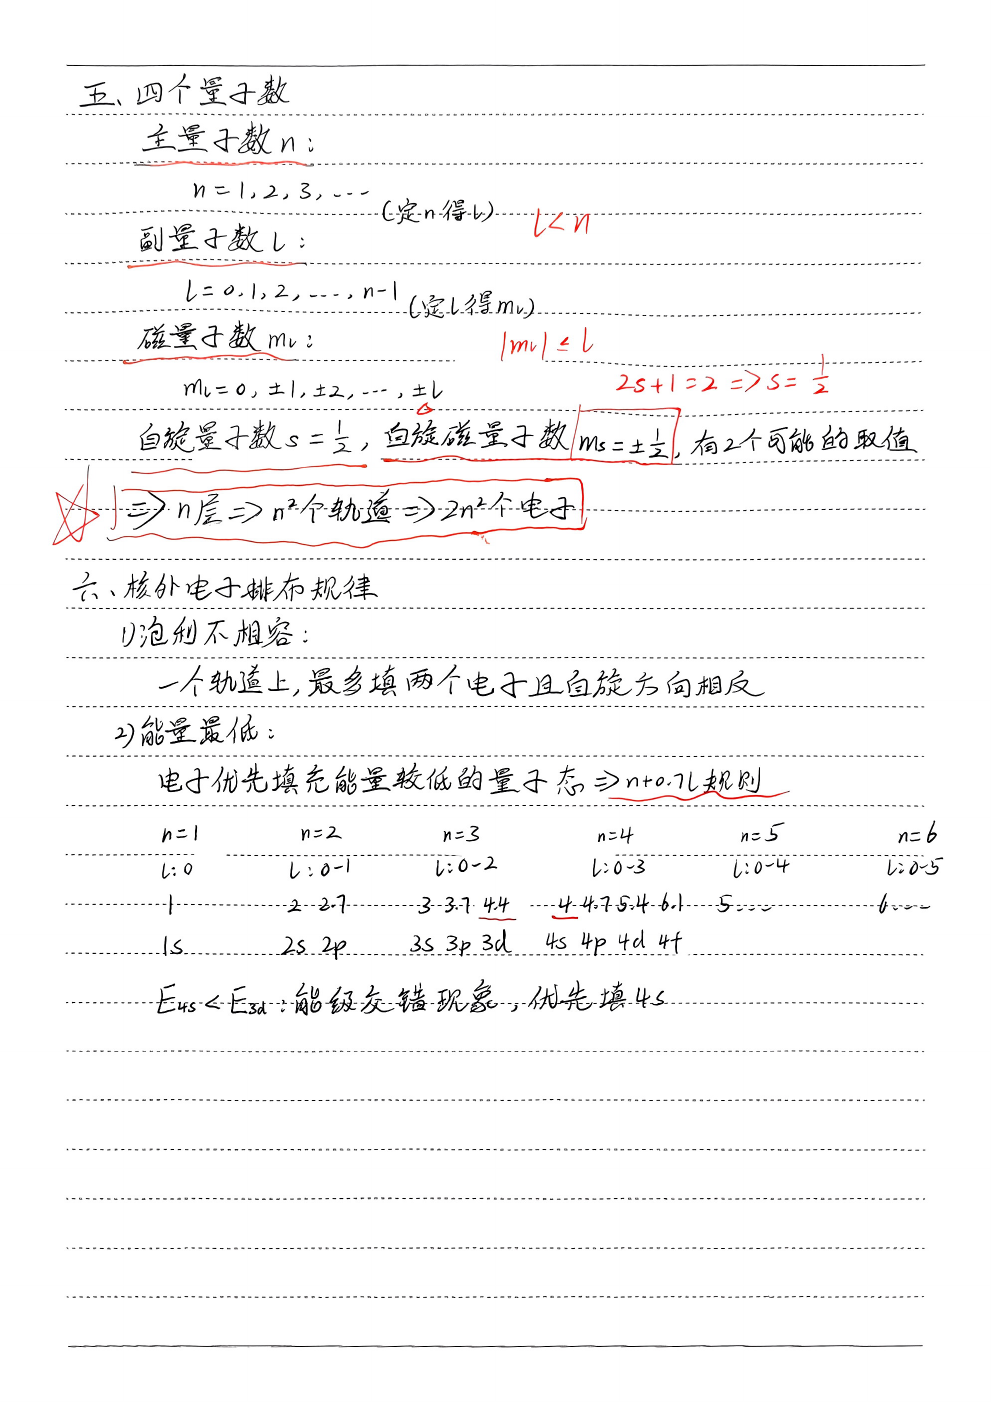 五、四个量子数
主量子数 n：
n = 1, 2, 3, ...
(定n得l) l < n
副量子数 l：
l = 0, 1, 2, ..., n-1
(定l得mₗ)
磁量子数 mₗ：
|mₗ| ≤ l
mₗ = 0, ±1, ±2, ..., ±l
2s+1=2 => s = 1/2
自旋量子数 s = 1/2, 自旋磁量子数 ms = ±1/2, 有2个可能的取值
=> n层 => n²个轨道 => 2n²个电子
六、核外电子排布规律
1) 泡利不相容：
一个轨道上, 最多填两个电子且自旋方向相反
2) 能量最低：
电子优先填充能量较低的量子态 => n+0.7l 规则
n=1 n=2 n=3 n=4 n=5 n=6
l:0 l:0-1 l:0-2 l:0-3 l:0-4 l:0-5
1 2 2.7 3 3.7 4.4 4 4.7 5.4 6.1 5... 6...
1s 2s 2p 3s 3p 3d 4s 4p 4d 4f
E4s < E3d : 能级交错现象, 优先填4s